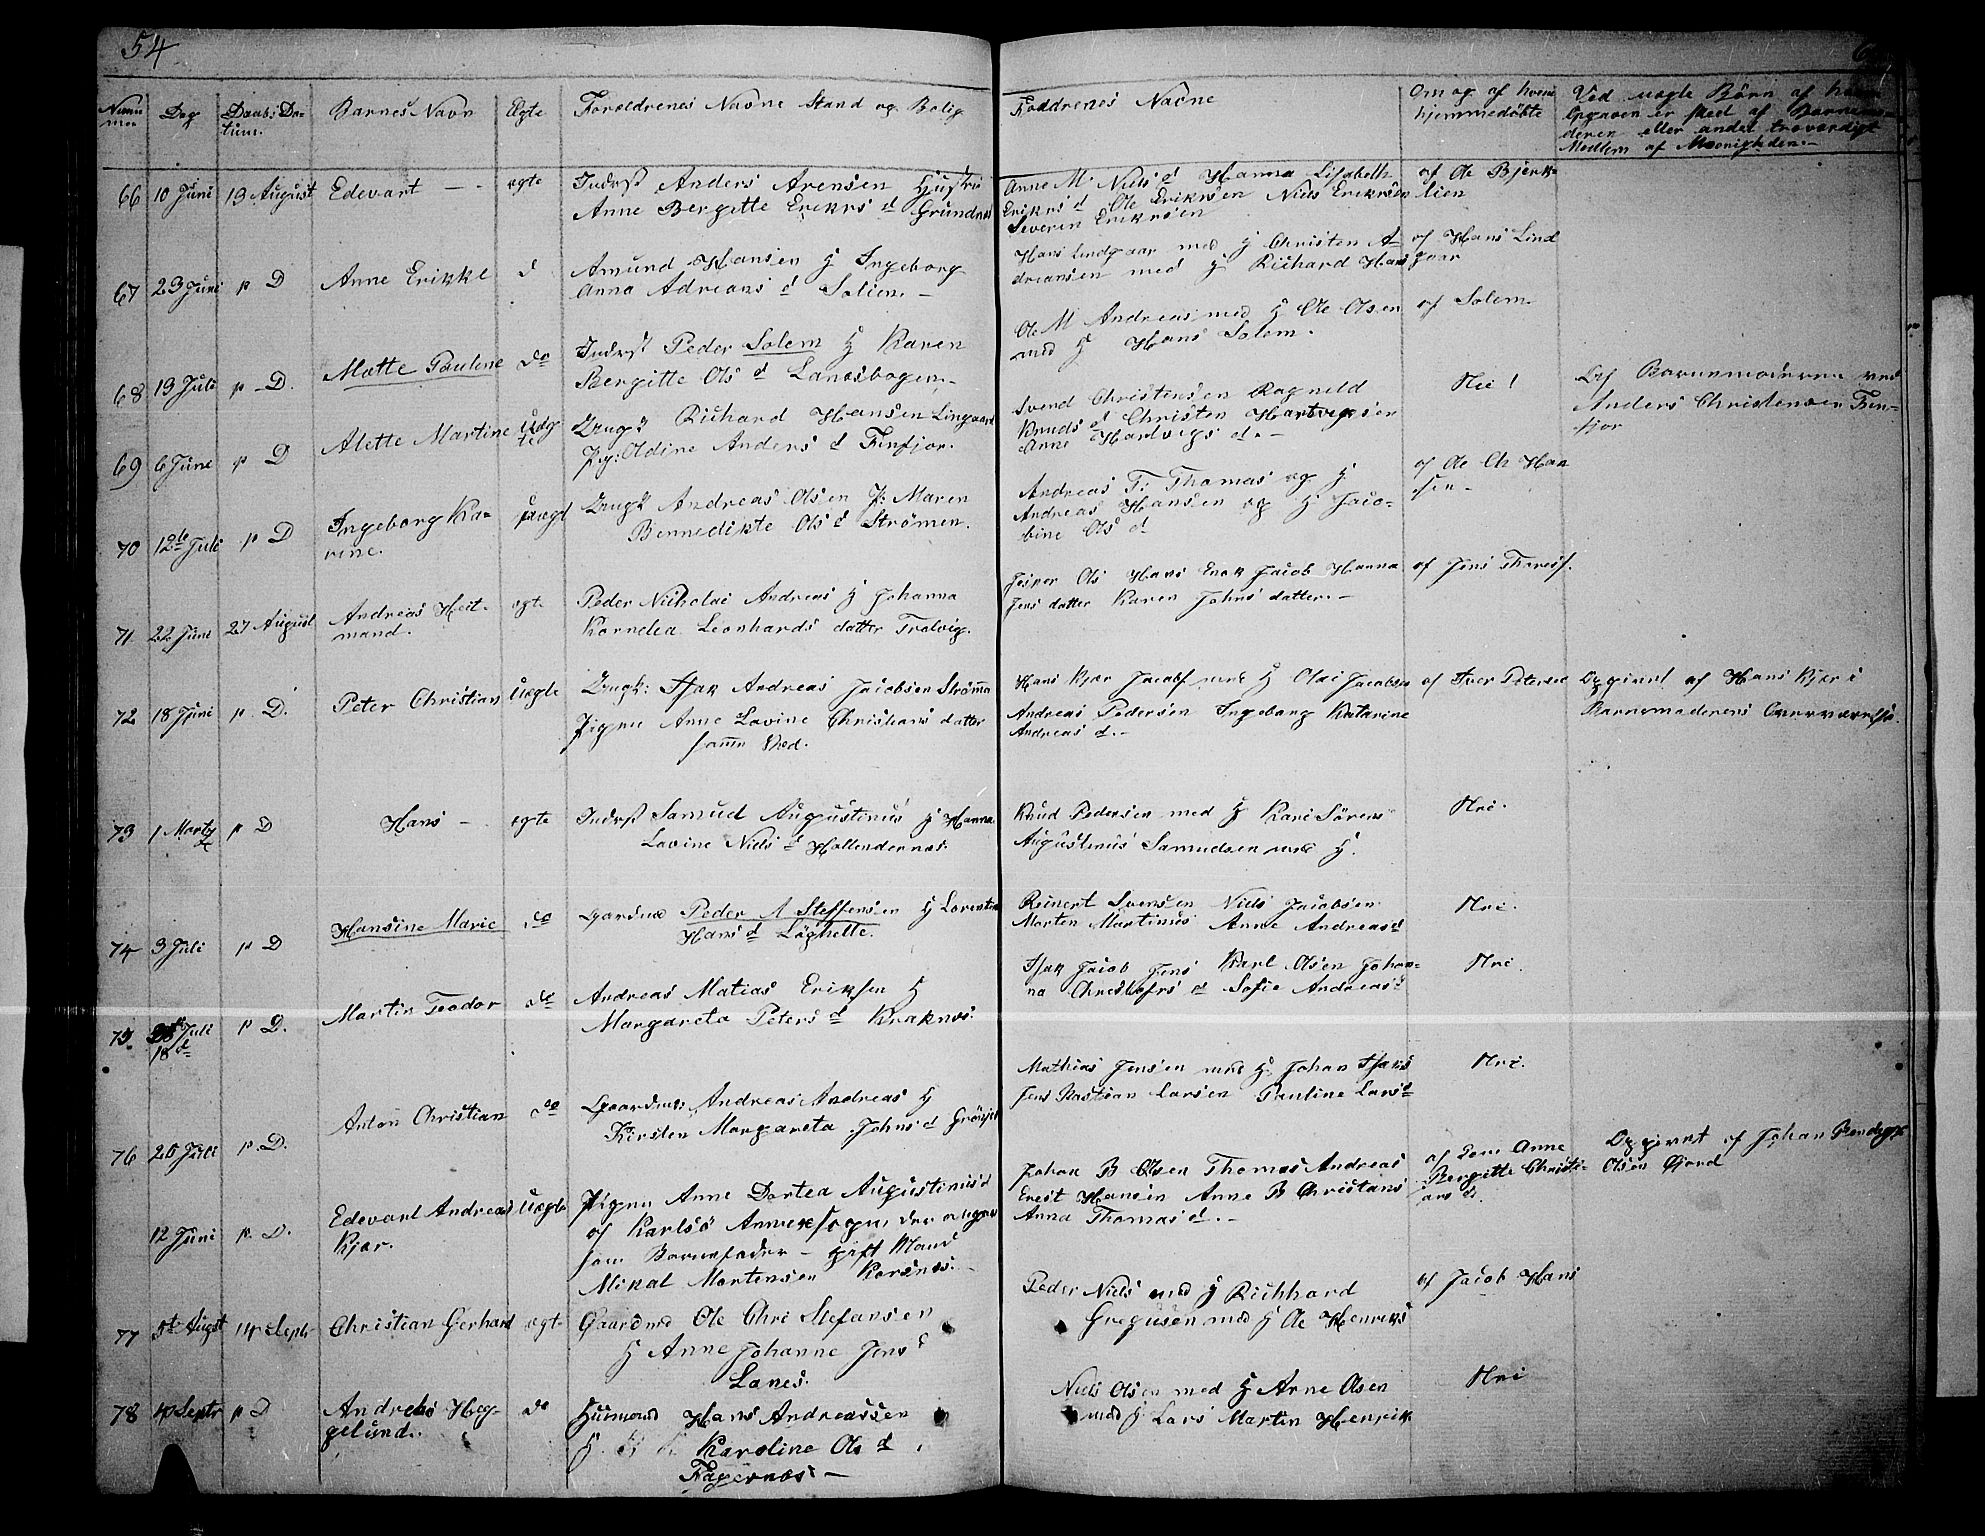 54
Numer
Dag
Daabs Datum.
Barnes Navn
Ægte
Foreldrenes Navne Stand og Bolig
Faddrenes Navne
Om og af hvem hjemmedöbte
Ved uægte Börn af hvem
Opgaven er sked af Barnemo-
deren eller andet troværdigt
Medlem af Menigheden.-
66 10 Juni 19 August Edevart - - ægte Inderst Anders Arensen Hustru
Anne Bergitte Erikrs d Grundnæs
Anne M Niels d Hanna Lisabeth
Erikrs d Ole Erikrsen Niels Erikrsen
Severin Erikrsen
af Ole Bjerk-
lien
67 23 Juni p D Anne Erikke d Amund Hansen H Ingeborg
Anna Adreans d Solien. -
Hans Lindgaar med H Christen A-
dreansen med H Richard Hans
af Hans Lind
gaar
68 19 Juli p D. Mette Paulene do Inderst Peder Solem H Karen
Bergitte Ols d Lanesbogen.-
Ole M Andreas med H Ole Olsen
med H Hans Solem.
af Solem.
69 6 Juni p D Alette Martine Uæg-
te Ungk Richard Hansen Lingaard
Pig: Oldine Anders d Finfjor.
Svend Christensen Ragneld
Knuds d Christen Hartvigsen
Anne Hartvigs d. -
Nei!
Af Barnemoderen ved
Anders Christensen Fin-
fjor
70 12te Juli p D Ingeborg Ka-
rine. uægt Ungk Andreas Olsen P: Maren
Bennedikte Ols d Strömen.
Andreas T. Thomas og H
Andreas Hansen og H Jaco-
bine Ols d
af Ole Ch Han
sen -
71 22 Juni 27 August Andreas Heit-
mand. egte Peder Nicholai Andreas H Johanna
Kornelea Leonhards datter Trolvig.
Jesper Ols Hans Enok Jacob Hanna
Jens datter Karen Johns datter. -
af Jens Thoresf.
72 18 Juni p. D. Peter Christian Uægte Ungk: Isak Andreas Jacobsen Strömen
Pigen Anne Lovine Christians datter
samme sted.
Hans Kjær Jacobs med H Olai Jacobsen
Andreas Pedersen Ingeborg Katarine
Andreas d. -
af Iver Petersen
Opgivet af Hans Kjær i
Barnemoderens Overværelse.
73 1 Marty p D Hans - egte Inderst Samuel Augustinus H Hanna
Lovine Niels d Hollendernæs.
Knud Pedersen med H Kari Sörens
Augustinus Samuelsen med H.
Nei.
74 3 Juli p D Hansine Marie do Gardmd Peder A Steffensen H Lorentin
Hans d Löghette.
Reinert Svensen Niels Jacobsen
Morten Martinus Anne Andreas d
Nei.
75. Juli
18de p D. Martin Teodor do Andreas Matias Eriksen H
Margareta Peters d Kraknæs.
Isak Jacob Jens Karl Olsen Johan-
na Christofrs d Sofie Andreas d
Nei.
76 20 Juli p. D. Anton Christian do Gaardmd: Andreas Andreas H
Kirsten Margareta Johns d Grönfjet
Mathias Jensen med H. Johan Isaks
Jens Bastian Larsen Pauline Lars d
Nei.
12 Juni p. D. Edevart Andreas
Kjær. Uægte Pigen Anne Dortea Augustinus d
af Karlsö Annexsogn der angiver
som Barnefader - gift Mand
Mikal Mortensen Korsnes. -
Johan B Olsen Thomas Andreas
Erest Hansen Anne B Christians
Anna Thomas d. -
af Anne
Bergitte Christi-
ans d.
Opgivet af Johan
Olsen Gjord
77 5te Augst 14 Septr Christian Gerhard egt Gaardmd Ole Chri Stefansen
H Anne Johanne Jens d
Lanes.
Peder Niels med H Richhard
Gregusen med H Ole Henriks
af Jacob Hans
78 Septr p D Andreas Heg-
gelund. do Huusmand Hans Andreassen
H. Karoline Ols d
Fagernæs. -
Niels Olsen med H Arne Olsen
med H Lars Martin Henrik
Nei